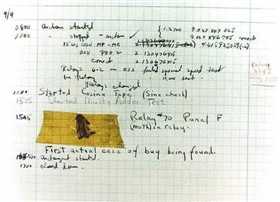 9/9
0800 antan started
1000 " stopped - antan ✓
13"uc (032) MP - MC
(033) PRO 2 2.130476415
correct 2.130676415
Relays 6-2 in 033 failed special speed test
in relay
Relays changed
1100 Started Cosine Tape (Sine check)
1525 Started Multi Adder Test
1545 Relay #70 Panel F
(moth) in relay.
First actual case of bug being found.
antangent started.
1700 closed down.